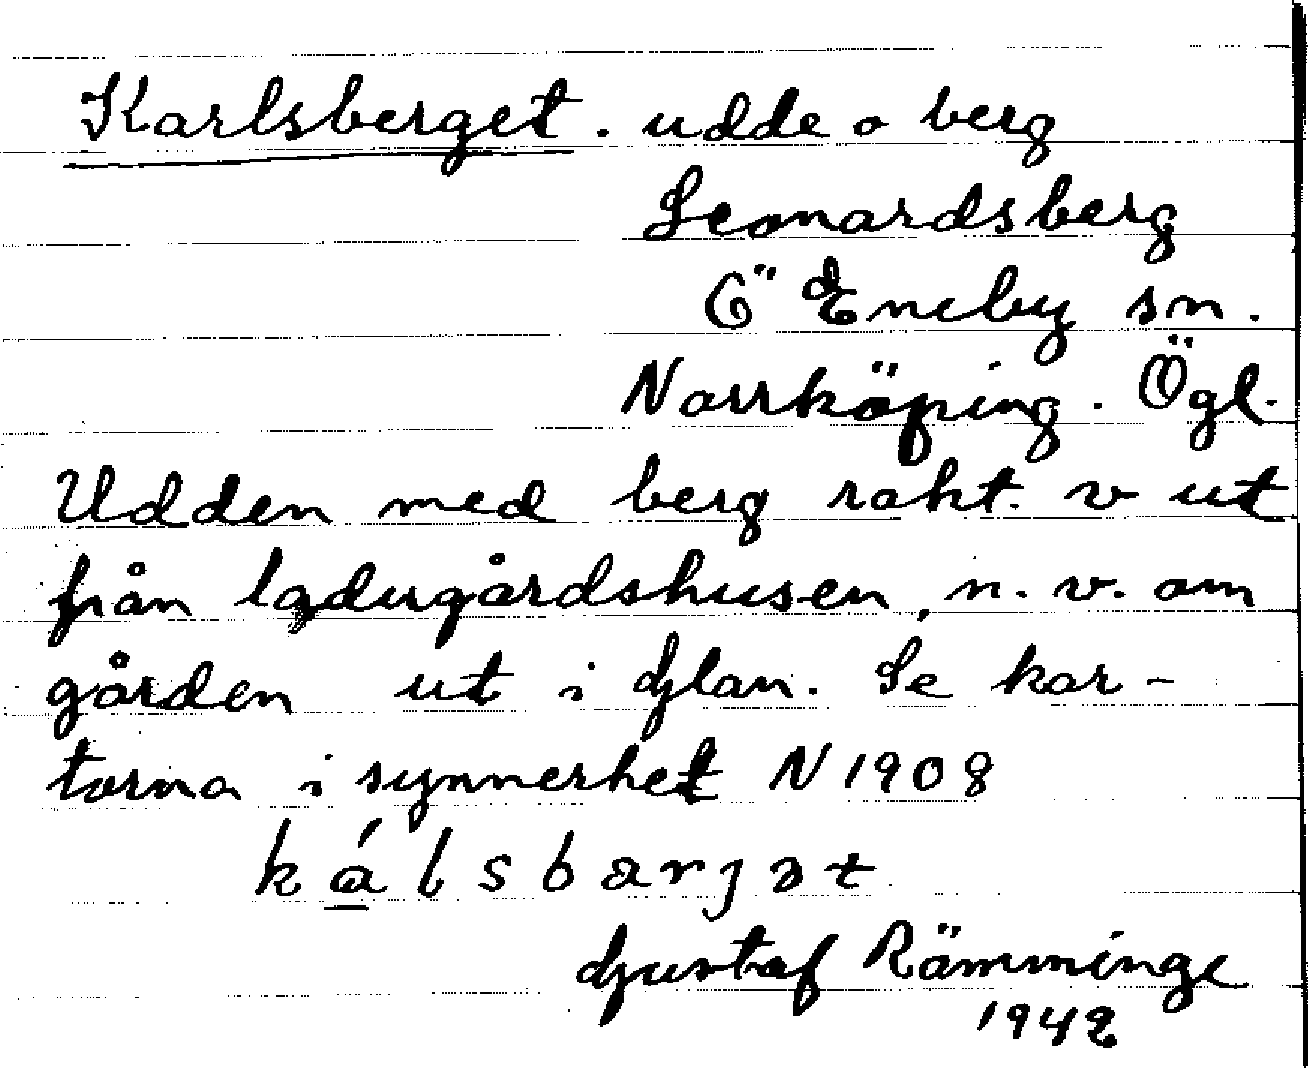 Karlsberget. udde o berg
Leonardsberg
Ö Eneby sn.
Norrköping. Ögl.
Udden med berg rakt. v ut
från ladugårdshusen, n. v. om
gården ut i Glan. Se kar-
torna i synnerhet N 1908
kálsbarjət
Gustaf Rämminge
1942